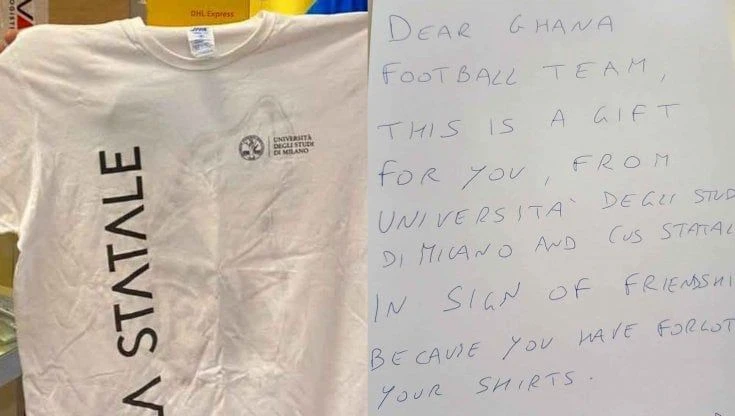 OGISTI
DHL Express
UNIVERSITÀ
DEGLI STUDI
DI MILANO
A STATALE
DEAR GHANA
FOOTBALL TEAM,
THIS IS A GIFT
FOR YOU, FROM
UNIVERSITA' DEGLI STUD
DI MILANO AND CUS STATAL
IN SIGN OF FRIENDSHI
BECAUSE YOU HAVE FORGOT
YOUR SHIRTS.